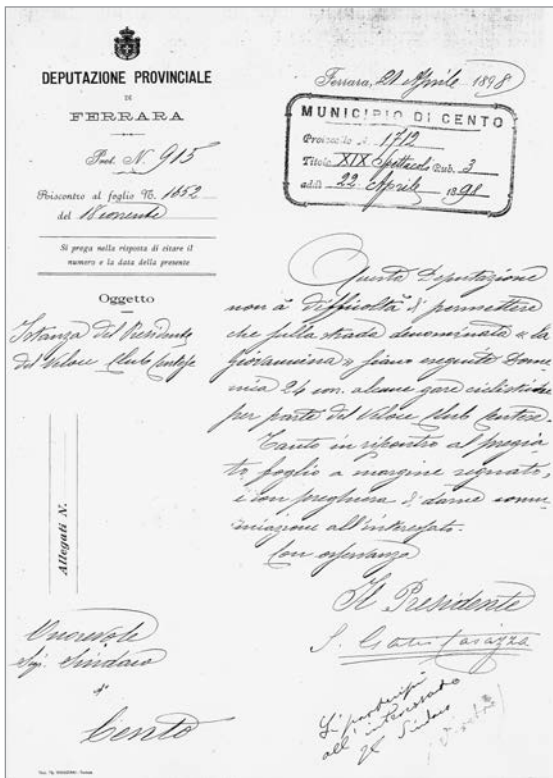 DEPUTAZIONE PROVINCIALE
DI
FERRARA
Prot. N. 915
Riscontro al foglio N. 1652
del 18 corrente
Si prega nella risposta di citare il
numero e la data della presente
Oggetto
Istanza del Presidente
del Veloce Club Centese
Allegati N.
Onorevole
Sig. Sindaco
di
Cento
Ferrara, 21 Aprile 1898
MUNICIPIO DI CENTO
Protocollo N. 1712
Titolo XIX Spettacolo Rub. 3
addì 22 Aprile 1898
Questa Deputazione
non à difficoltà di permettere
che sulla strada denominata « la
Giovannina » siano eseguite Dome
nica 24 corr. alcune gare ciclistiche
per parte del Veloce Club Centese.
Tanto in riscontro al pregia
to foglio a margine segnato,
e con preghiera di darne comu
nicazione all'interessato.
Con osservanza
Il Presidente
Si partecipi
all'interessato
Il Sindaco